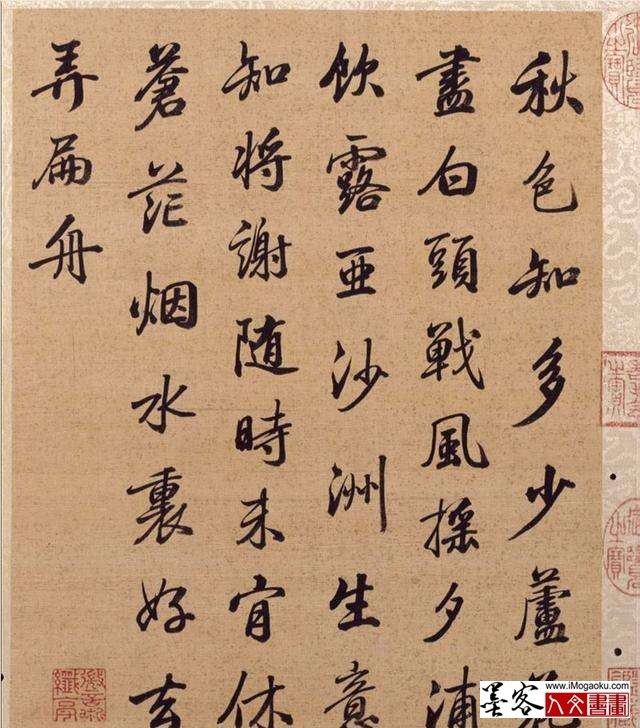 秋色知多少蘆花
盡白頭戰風搖夕浦
飲露亞沙洲生意
知将謝随時未肎休
蒼茫烟水裏好去
弄扁舟
墨客
www.iMogaoku.com
人文書畫